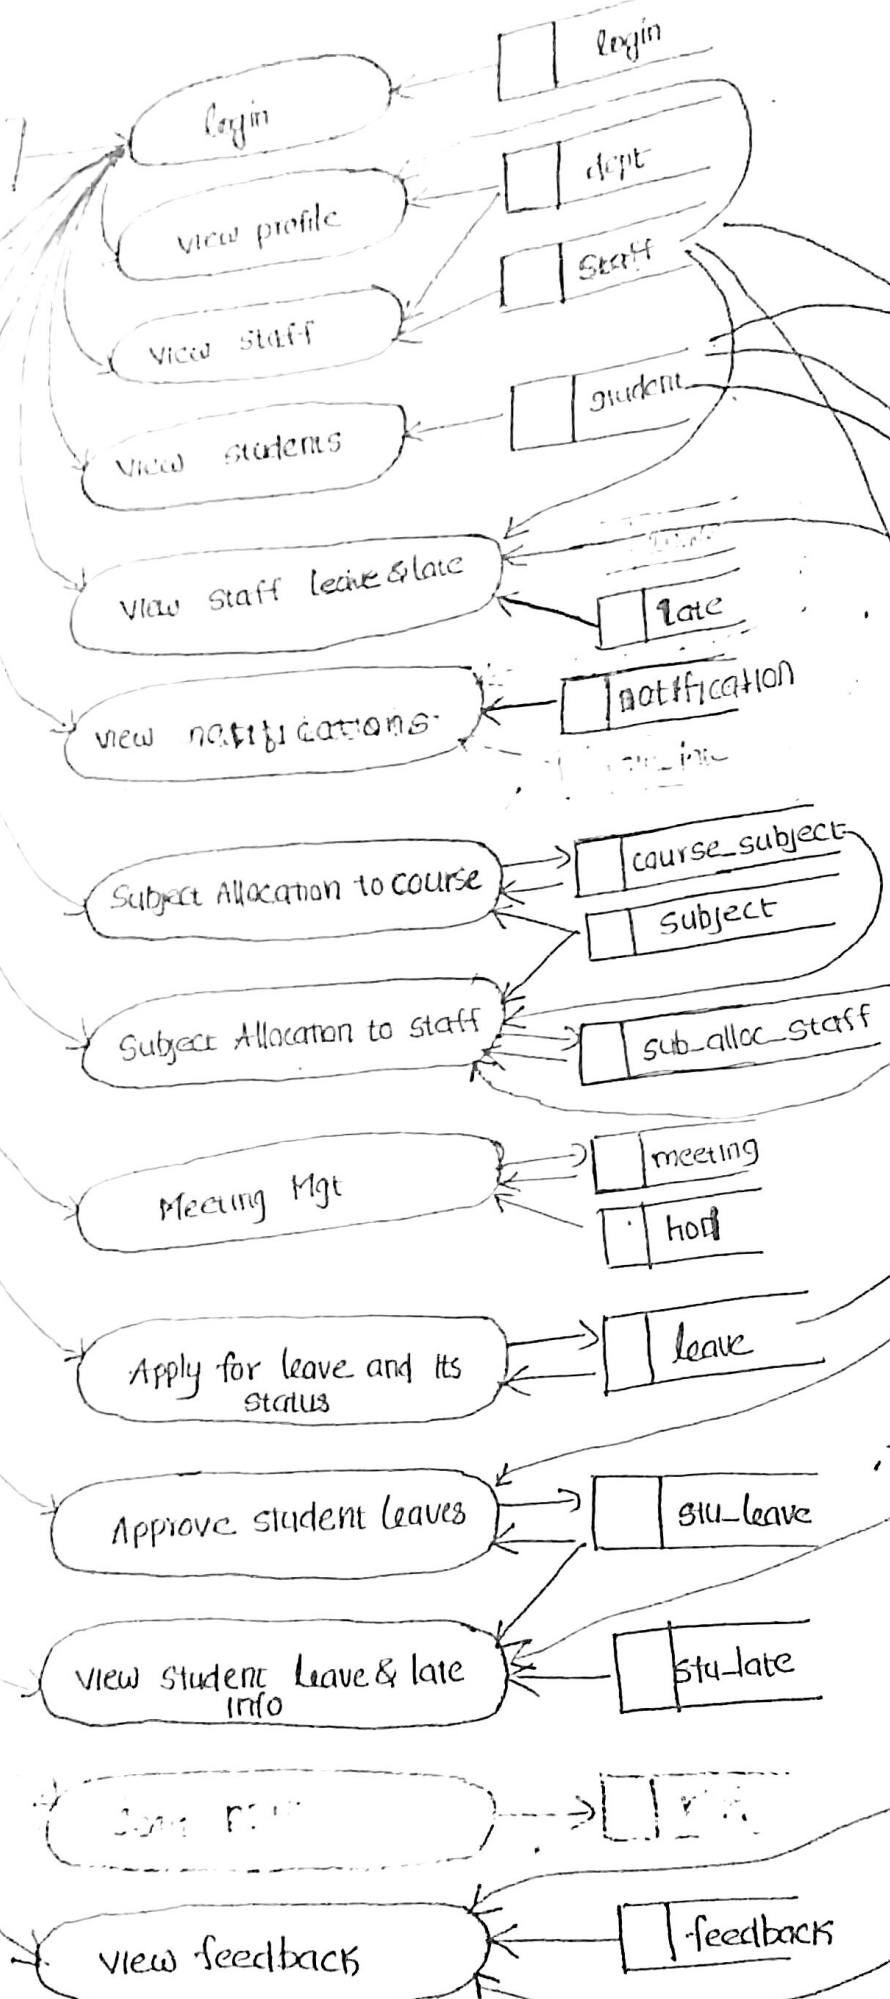 login
login
dept
view profile
staff
view staff
student
view students
view staff leave & late
late
notification
view notifications
course_subject
Subject Allocation to course
subject
Subject Allocation to staff
sub_alloc_staff
meeting
Meeting Mgt
hod
leave
Apply for leave and its
status
Approve student leaves
stu_leave
view student leave & late
info
stu_late
view feedback
feedback